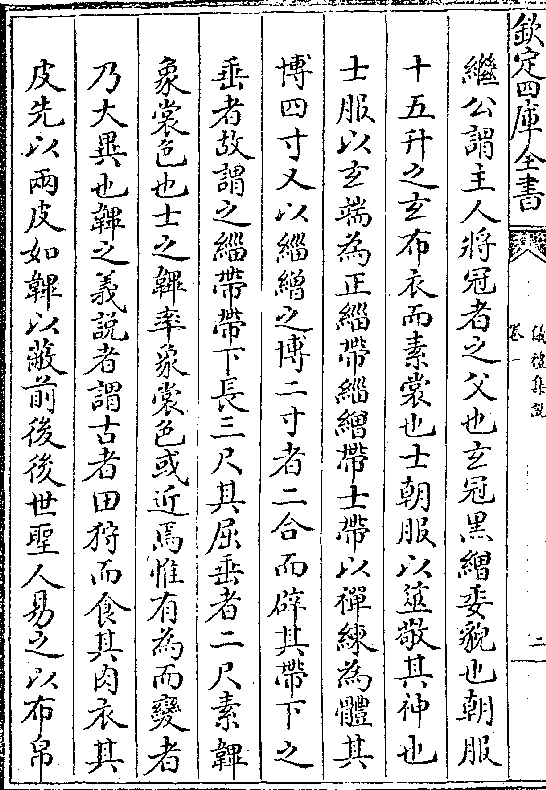 欽定四庫全書
儀禮集說
卷一
二
繼公謂主人將冠者之父也玄冠黑繒委貌也朝服
十五升之玄布衣而素裳也士朝服以筮敬其神也
士服以玄端為正緇帶緇繒帶士帶以襌練為體其
博四寸又以緇繒之博二寸者二合而辟其帶下之
垂者故謂之緇帶帶下長三尺其屈垂者二尺素韠
象裳色也士之韠率象裳色或近焉惟有為而變者
乃大異也韠之義說者謂古者田狩而食其肉衣其
皮先以兩皮如韠以蔽前後後世聖人易之以布帛